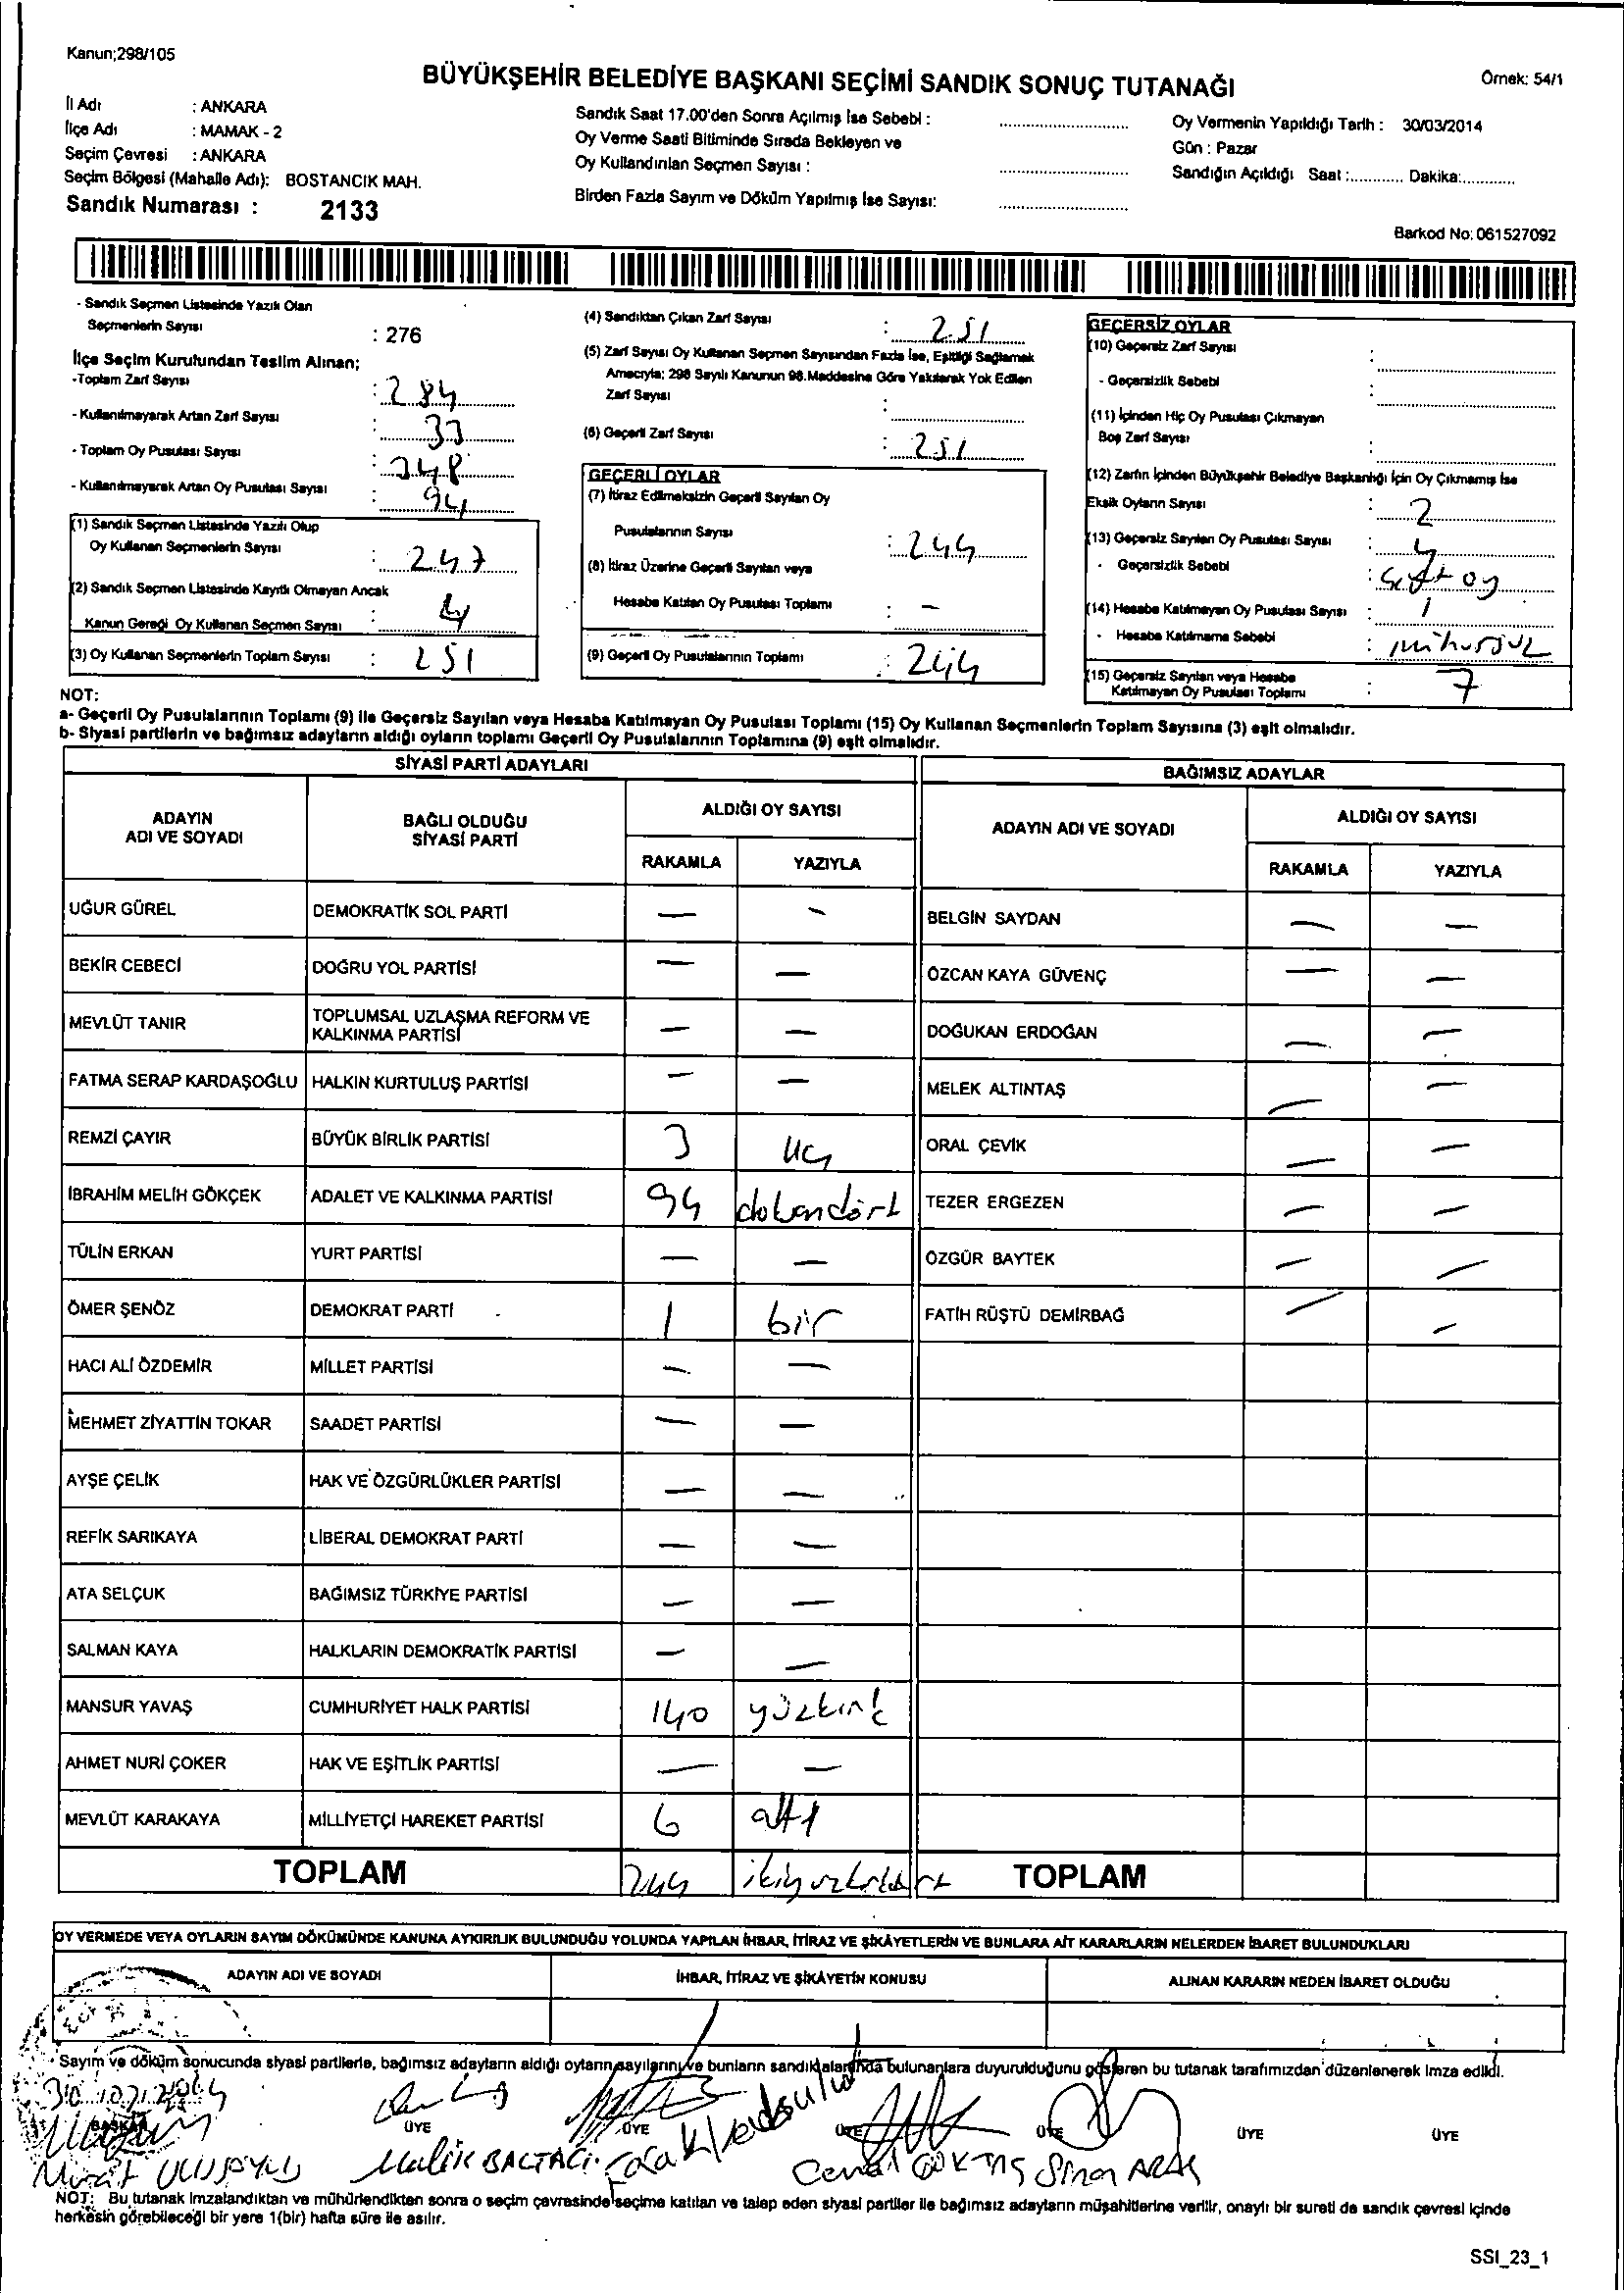 Kanun;298/105
BÜYÜKŞEHİR BELEDİYE BAŞKANI SEÇİMİ SANDIK SONUÇ TUTANAĞI
Örnek: 54/1
İl Adı : ANKARA
İlçe Adı : MAMAK - 2
Seçim Çevresi : ANKARA
Seçim Bölgesi (Mahalle Adı): BOSTANCIK MAH.
Sandık Numarası : 2133
Sandık Saat 17.00'den Sonra Açılmış İse Sebebi :
Oy Verme Saati Bitiminde Sırada Bekleyen ve
Oy Kullandırılan Seçmen Sayısı :
Birden Fazla Sayım ve Döküm Yapılmış İse Sayısı:
Oy Vermenin Yapıldığı Tarih : 30/03/2014
Gün : Pazar
Sandığın Açıldığı Saat :............ Dakika:............
Barkod No: 061527092
- Sandık Seçmen Listesinde Yazılı Olan
Seçmenlerin Sayısı : 276
İlçe Seçim Kurulundan Teslim Alınan;
-Toplam Zarf Sayısı : 284
- Kullanılmayarak Artan Zarf Sayısı : 33
- Toplam Oy Pusulası Sayısı : 348
- Kullanılmayarak Artan Oy Pusulası Sayısı : 94
(1) Sandık Seçmen Listesinde Yazılı Olup
Oy Kullanan Seçmenlerin Sayısı : 247
(2) Sandık Seçmen Listesinde Kayıtlı Olmayan Ancak
Kanun Gereği Oy Kullanan Seçmen Sayısı : 4
(3) Oy Kullanan Seçmenlerin Toplam Sayısı : 251
(4) Sandıktan Çıkan Zarf Sayısı : 251
(5) Zarf Sayısı Oy Kullanan Seçmen Sayısından Fazla İse, Eşitliği Sağlamak
Amacıyla; 298 Sayılı Kanunun 98.Maddesine Göre Yakılarak Yok Edilen
Zarf Sayısı :
(6) Geçerli Zarf Sayısı : 251
GEÇERLİ OYLAR
(7) İtiraz Edilmeksizin Geçerli Sayılan Oy
Pusulalarının Sayısı : 244
(8) İtiraz Üzerine Geçerli Sayılan veya
Hesaba Katılan Oy Pusulası Toplamı : -
(9) Geçerli Oy Pusulalarının Toplamı : 244
GEÇERSİZ OYLAR
(10) Geçersiz Zarf Sayısı :
- Geçersizlik Sebebi :
(11) İçinden Hiç Oy Pusulası Çıkmayan
Boş Zarf Sayısı :
(12) Zarfın İçinden Büyükşehir Belediye Başkanlığı İçin Oy Çıkmamış İse
Eksik Oyların Sayısı : 2
(13) Geçersiz Sayılan Oy Pusulası Sayısı : 4
- Geçersizlik Sebebi : çift oy
(14) Hesaba Katılmayan Oy Pusulası Sayısı : 1
- Hesaba Katılmama Sebebi : mühürsüz
(15) Geçersiz Sayılan veya Hesaba
Katılmayan Oy Pusulası Toplamı : 7
NOT:
a- Geçerli Oy Pusulalarının Toplamı (9) ile Geçersiz Sayılan veya Hesaba Katılmayan Oy Pusulası Toplamı (15) Oy Kullanan Seçmenlerin Toplam Sayısına (3) eşit olmalıdır.
b- Siyasi partilerin ve bağımsız adayların aldığı oyların toplamı Geçerli Oy Pusulalarının Toplamına (9) eşit olmalıdır.
SİYASİ PARTİ ADAYLARI
ADAYIN ADI VE SOYADI
BAĞLI OLDUĞU SİYASİ PARTİ
ALDIĞI OY SAYISI
RAKAMLA YAZIYLA
UĞUR GÜREL DEMOKRATİK SOL PARTİ - -
BEKİR CEBECİ DOĞRU YOL PARTİSİ - -
MEVLÜT TANIR TOPLUMSAL UZLAŞMA REFORM VE KALKINMA PARTİSİ - -
FATMA SERAP KARDAŞOĞLU HALKIN KURTULUŞ PARTİSİ - -
REMZİ ÇAYIR BÜYÜK BİRLİK PARTİSİ 3 uç
İBRAHİM MELİH GÖKÇEK ADALET VE KALKINMA PARTİSİ 94 doksandört
TÜLİN ERKAN YURT PARTİSİ - -
ÖMER ŞENÖZ DEMOKRAT PARTİ 1 bir
HACI ALİ ÖZDEMİR MİLLET PARTİSİ - -
MEHMET ZİYATTİN TOKAR SAADET PARTİSİ - -
AYŞE ÇELİK HAK VE ÖZGÜRLÜKLER PARTİSİ - -
REFİK SARIKAYA LİBERAL DEMOKRAT PARTİ - -
ATA SELÇUK BAĞIMSIZ TÜRKİYE PARTİSİ - -
SALMAN KAYA HALKLARIN DEMOKRATİK PARTİSİ - -
MANSUR YAVAŞ CUMHURİYET HALK PARTİSİ 140 yüzkırk
AHMET NURİ ÇOKER HAK VE EŞİTLİK PARTİSİ - -
MEVLÜT KARAKAYA MİLLİYETÇİ HAREKET PARTİSİ 6 altı
TOPLAM 244 ikiyüzkırkdört
BAĞIMSIZ ADAYLAR
ADAYIN ADI VE SOYADI
ALDIĞI OY SAYISI
RAKAMLA YAZIYLA
BELGİN SAYDAN - -
ÖZCAN KAYA GÜVENÇ - -
DOĞUKAN ERDOĞAN - -
MELEK ALTINTAŞ - -
ORAL ÇEVİK - -
TEZER ERGEZEN - -
ÖZGÜR BAYTEK - -
FATİH RÜŞTÜ DEMİRBAĞ - -
TOPLAM
OY VERMEDE VEYA OYLARIN SAYIM DÖKÜMÜNDE KANUNA AYKIRILIK BULUNDUĞU YOLUNDA YAPILAN İHBAR, İTİRAZ VE ŞİKÂYETLERİN VE BUNLARA AİT KARARLARIN NELERDEN İBARET BULUNDUKLARI
ADAYIN ADI VE SOYADI
İHBAR, İTİRAZ VE ŞİKÂYETİN KONUSU
ALINAN KARARIN NEDEN İBARET OLDUĞU
Sayım ve döküm sonucunda siyasi partilerle, bağımsız adayların aldığı oyların sayılarını ve bunların sandık alanında bulunanlara duyurulduğunu gösteren bu tutanak tarafımızdan düzenlenerek imza edildi.
BAŞKAN ÜYE ÜYE ÜYE ÜYE ÜYE ÜYE
Malik BALTACI Cemal GÖKTAŞ Sinan ARAS
NOT: Bu tutanak imzalandıktan ve mühürlendikten sonra o seçim çevresinde seçime katılan ve talep eden siyasi partiler ile bağımsız adayların müşahitlerine verilir, onaylı bir sureti de sandık çevresi içinde
herkesin görebileceği bir yere 1(bir) hafta süre ile asılır.
SSI_23_1